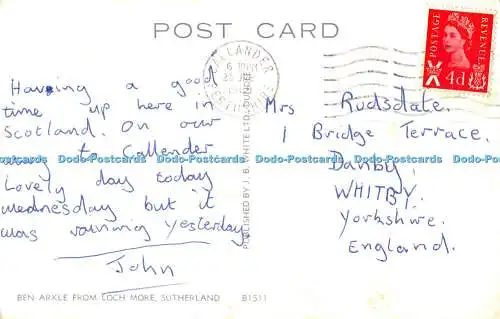 POST CARD
Having a good
time up here in
Scotland. On our
way to Callender
Lovely day today
wednesday but it
was raining yesterday.
John
BEN ARKLE FROM LOCH MORE, SUTHERLAND B1511
PUBLISHED BY J. B. WHITE LTD., DUNDEE
CALLANDER
6 PM
PERTHSHIRE
POSTAGE
REVENUE
4d
Mrs Rudsdale.
1 Bridge Terrace.
Danby.
WHITBY.
Yorkshire.
England.
Dodo-Postcards Dodo-Postcards Dodo-Postcards Dodo-Postcards Dodo-Postcards Dodo-Postcards